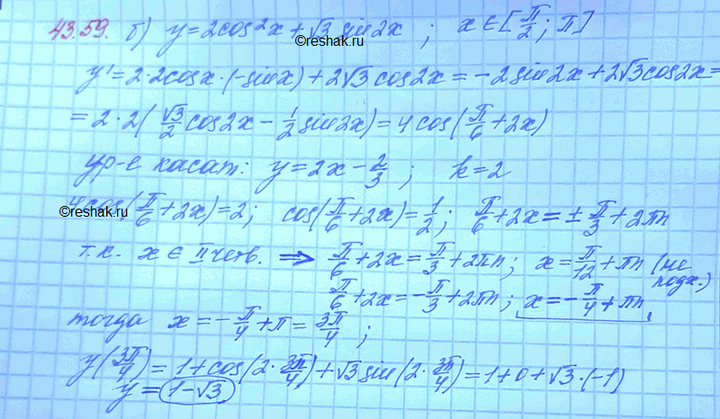 43.59. б) y=2cos²x+√3 sin2x ; x∈[π/2; π]
©reshak.ru
y'=2·2cosx·(-sinx)+2√3 cos2x=-2sin2x+2√3cos2x=
=2·2(√3/2 cos2x - 1/2 sin2x)=4cos(π/6+2x)
ур-е касат: y=2x-2/3 ; k=2
4cos(π/6+2x)=2; cos(π/6+2x)=1/2; π/6+2x=±π/3+2πn
©reshak.ru
т.к. x∈II четв. ⟹ π/6+2x=π/3+2πn; x=π/12+πn (не подх.)
π/6+2x=-π/3+2πn; x=-π/4+πn
тогда x=-π/4+π=3π/4 ;
y(3π/4)=1+cos(2·3π/4)+√3 sin(2·3π/4)=1+0+√3·(-1)
y=1-√3